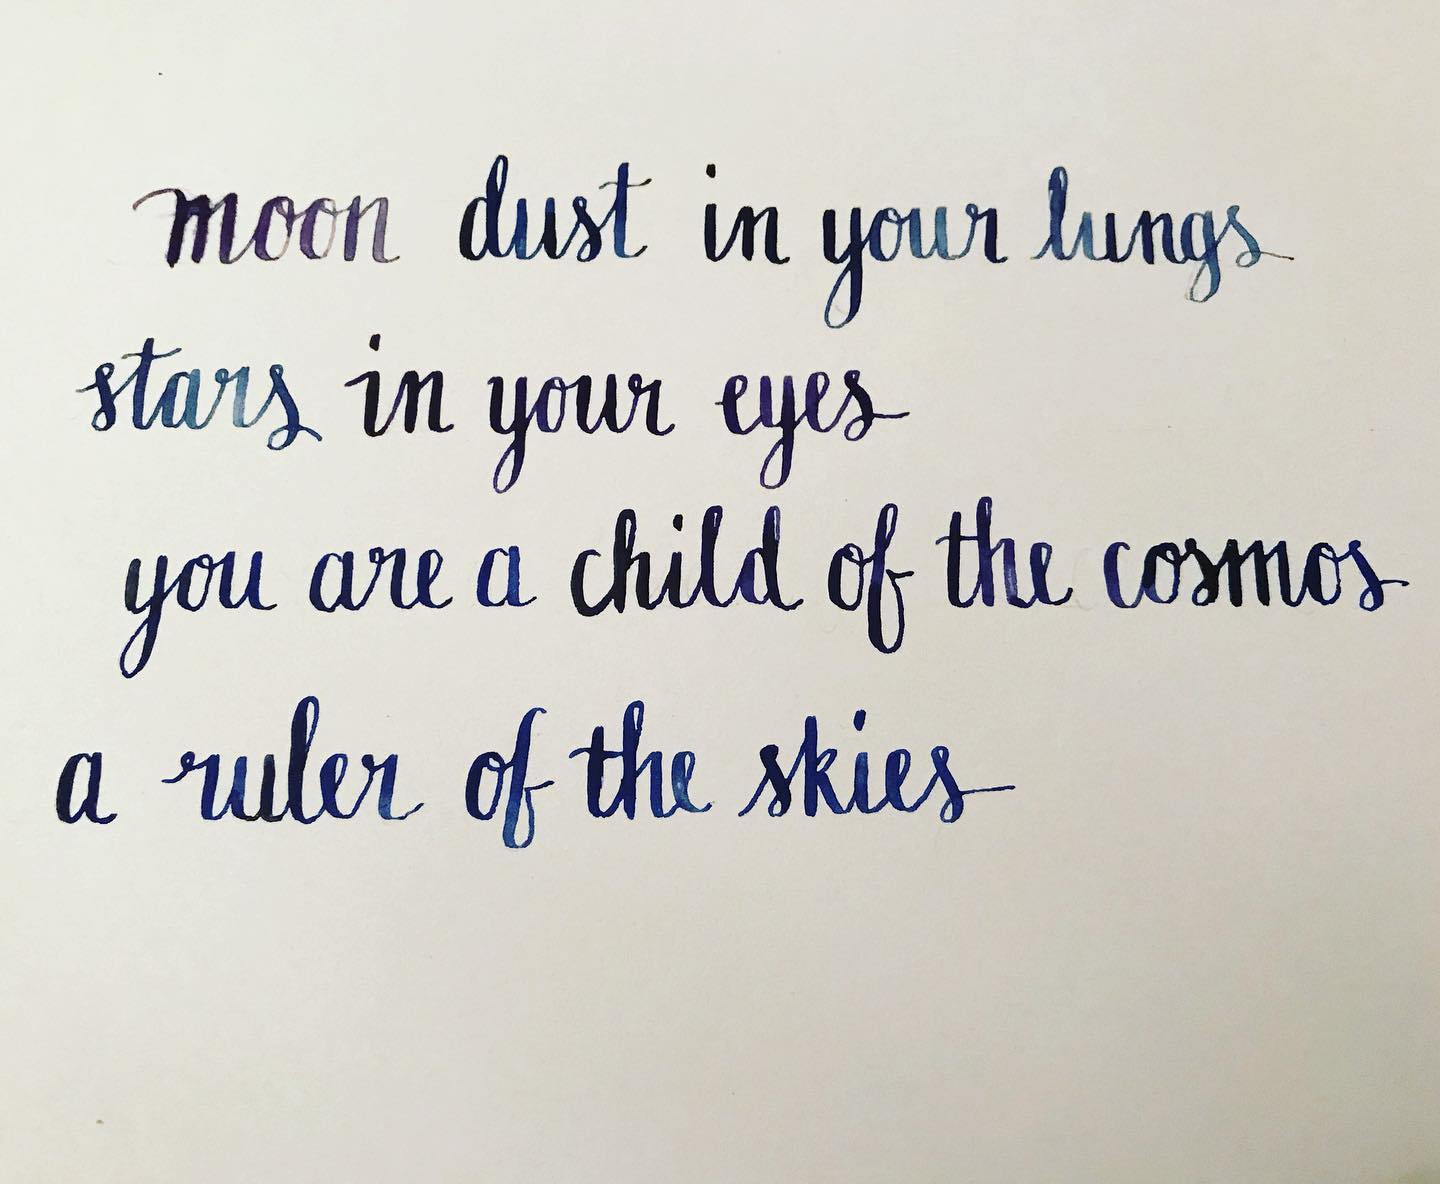 moon dust in your lungs
stars in your eyes
you are a child of the cosmos
a ruler of the skies